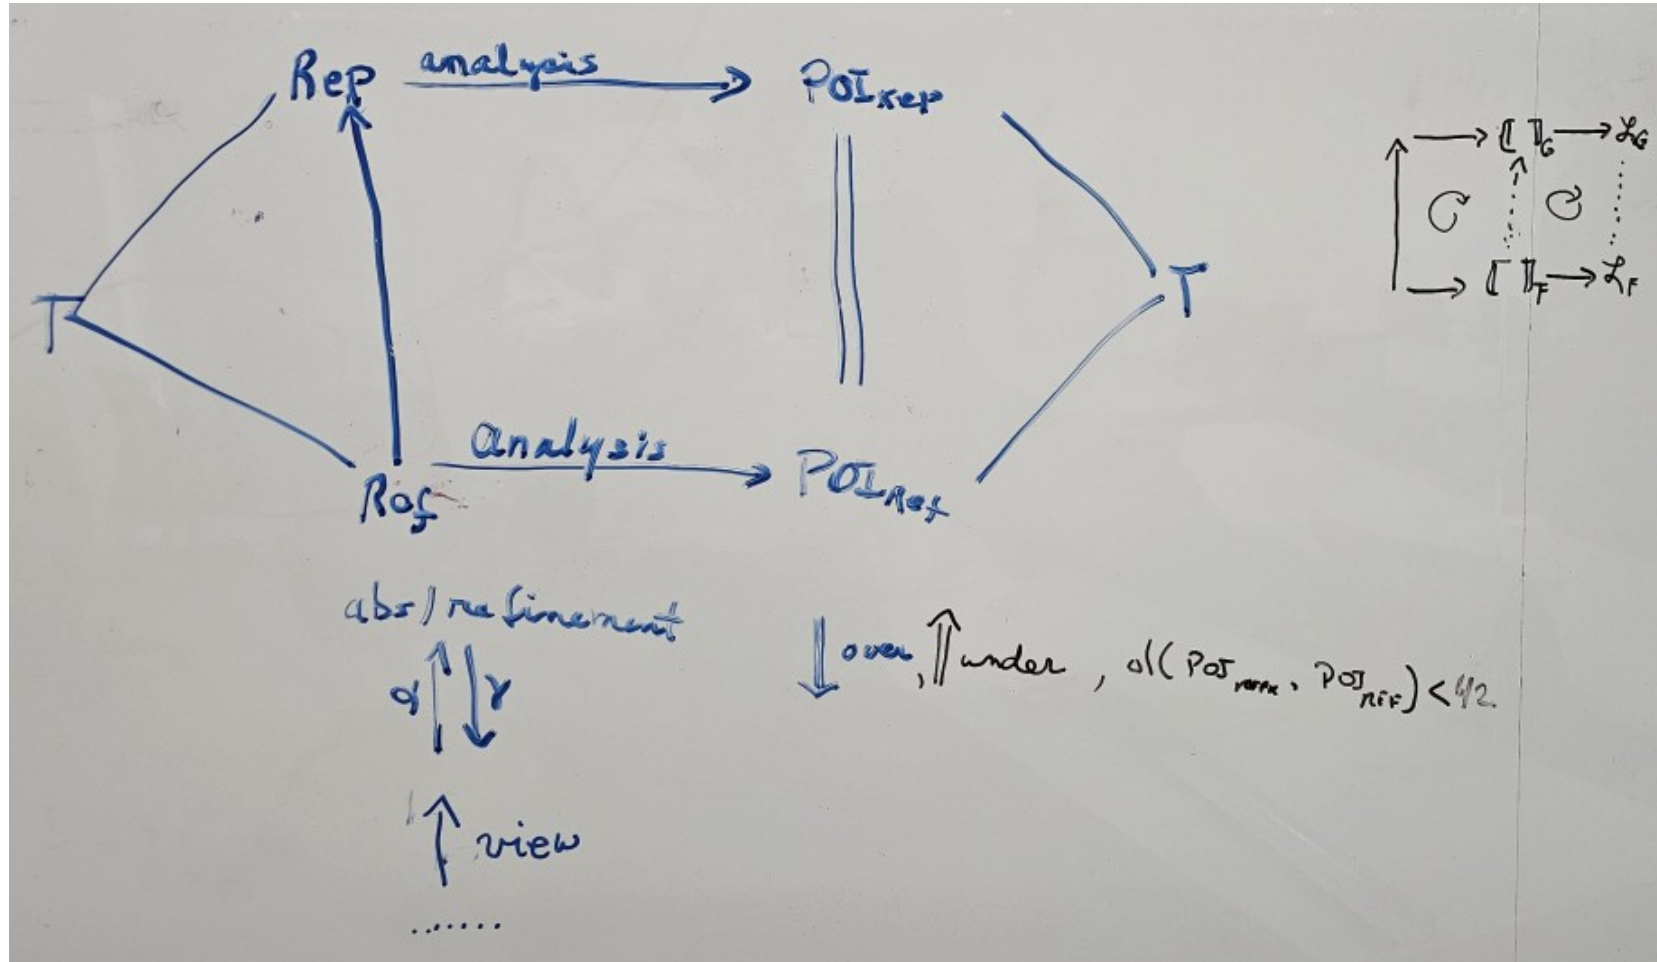 Rep analysis POI Rep
⟦ ⟧G ℒG
T T
⟦ ⟧F ℒF
Ref analysis POI Ref
abs/refinement
over, under, d(POI , POI REF) < 42
α γ
view
.......